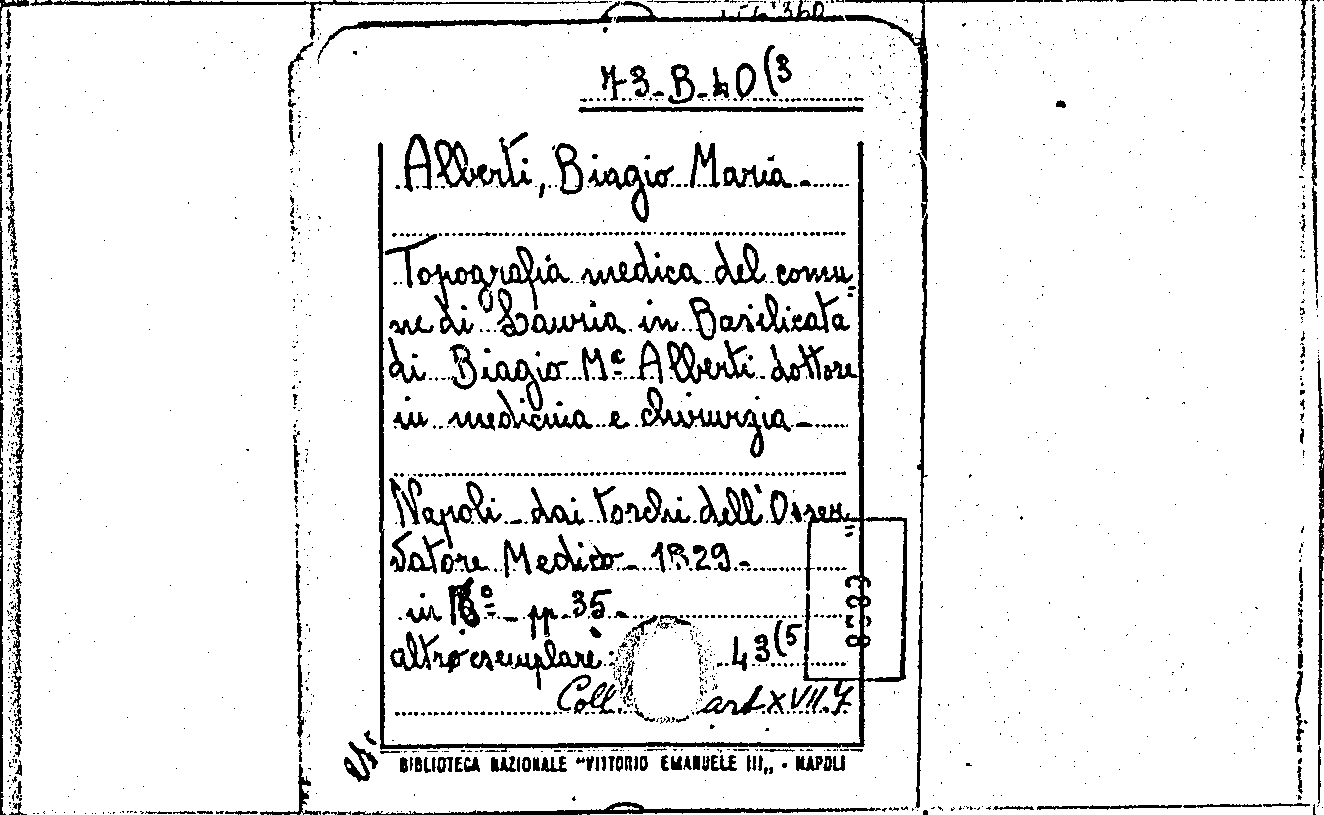 73-B-40(3
Alberti, Biagio Maria-
Topografia medica del comu=
ne di Lauria in Basilicata
di Biagio Mª Alberti dottore
in medicina e chirurgia-
Napoli - dai torchi dell'Osser=
vatore Medico - 1829-
in 8º - pp. 35-
altro esemplare: 43(5
Coll. XVII.7
BIBLIOTECA NAZIONALE "VITTORIO EMANUELE III„ - NAPOLI